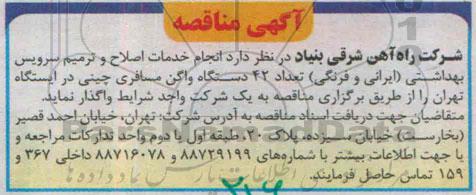 آگهی مناقصه
شرکت راه آهن شرقی بنیاد در نظر دارد انجام خدمات اصلاح و ترمیم سرویس
بهداشتی (ایرانی و فرنگی) تعداد ۴۲ دستگاه واگن مسافری چینی در ایستگاه
تهران را از طریق برگزاری مناقصه به یک شرکت واجد شرایط واگذار نماید.
متقاضیان جهت دریافت اسناد مناقصه به آدرس شرکت: تهران، خیابان احمد قصیر
(بخارست) خیابان سیزده، پلاک ۲۰، طبقه اول یا دوم واحد تدارکات مراجعه و
یا جهت اطلاعات بیشتر با شماره‌های ۸۸۷۲۹۱۹۹ و ۸۸۷۱۶۰۷۸ داخلی ۳۶۷ و
۱۵۹ تماس حاصل فرمایند.